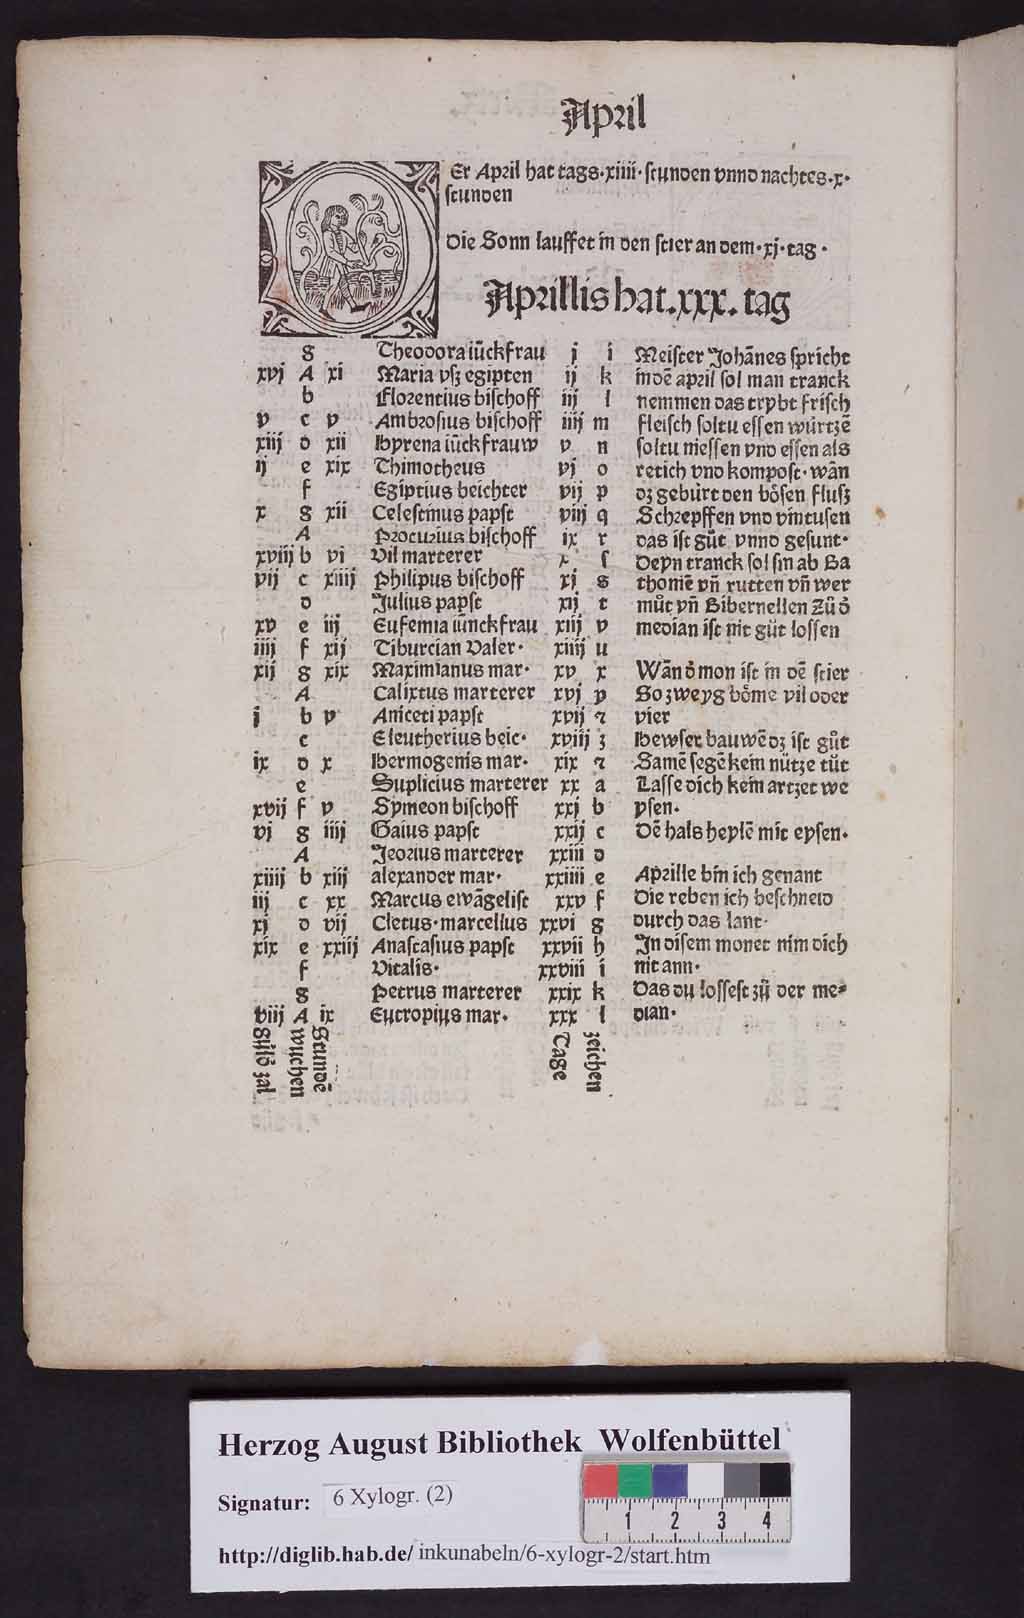 April
Er April hat tags·xiiii·stunden vnnd nachtes·x·
stunden
Die Sonn lauffet in den stier an dem·xj·tag·
Aprillis hat.xxx.tag
g Theodora iūckfrau j i Meister Johānes spricht
xvj A xi Maria vsz egipten ij k in dē april sol man tranck
b Florentius bischoff iij l nemmen das trybt frisch
v c v Ambrosius bischoff iiij m fleisch soltu essen würtzē
xiij d xii Hyrena iūckfrauw v n soltu niessen vnd essen als
ij e xix Thimotheus vj o retich vnd kompost·wān
f Egiptius beichter vij p dz gebürt den bösen flusz
x g xii Celestinus papst viij q Schrepffen vnd vintusen
A Procurius bischoff ix r das ist gůt vnnd gesunt·
xviij b vi Vil marterer x s Deyn tranck sol sin ab Ba
vij c xiiij Philipus bischoff xj s thoniē vn̄ rutten vn̄ wer
d Julius papst xij t můt vn̄ Bibernellen Zů d̕
xv e iij Eufemia iūnckfrau xiij v median ist nit gůt lossen
iiij f xij Tiburcian Valer· xiiij u
xij g xix Maximianus mar· xv x Wān d̕ mon ist in dē stier
A Calixtus marterer xvj y So zweyg böme vil oder
j b v Aniceti papst xvij ꝛ vier
c Eleutherius beic· xviij z Hewser bauwē dz ist gůt
ix d x Hermogenis mar· xix ꝛ Samē segē kein nütze tůt
e Suplicius marterer xx a Lasse dich kein artzet we
xvij f v Symeon bischoff xxj b ysen·
vj g iiij Gaius papst xxij c Dē hals heylē mit eysen·
A Jeorius marterer xxiii d
xiiij b xiij alexander mar· xxiiii e Aprille bin ich genant
iij c xx Marcus ewāgelist xxv f Die reben ich beschneid
xj d vij Cletus·marcellus xxvi g durch das lant·
xix e xxiij Anastasius papst xxvii h In disem monet nim dich
f Vitalis· xxviii i nit ann·
g Petrus marterer xxix k Das du lossest zů der me⸗
viij A ix Eutropius mar· xxx l dian·
Gůld zal
wuchen
Stundē
Tage
zeichen
Herzog August Bibliothek Wolfenbüttel
Signatur: 6 Xylogr. (2)
1 2 3 4
http://diglib.hab.de/ inkunabeln/6-xylogr-2/start.htm